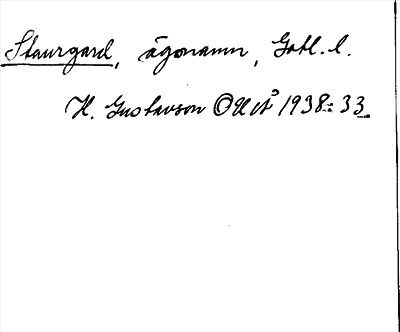 Staurgard, ägonamn, Gotl. l.
H. Gustavson OUÅ 1938: 33